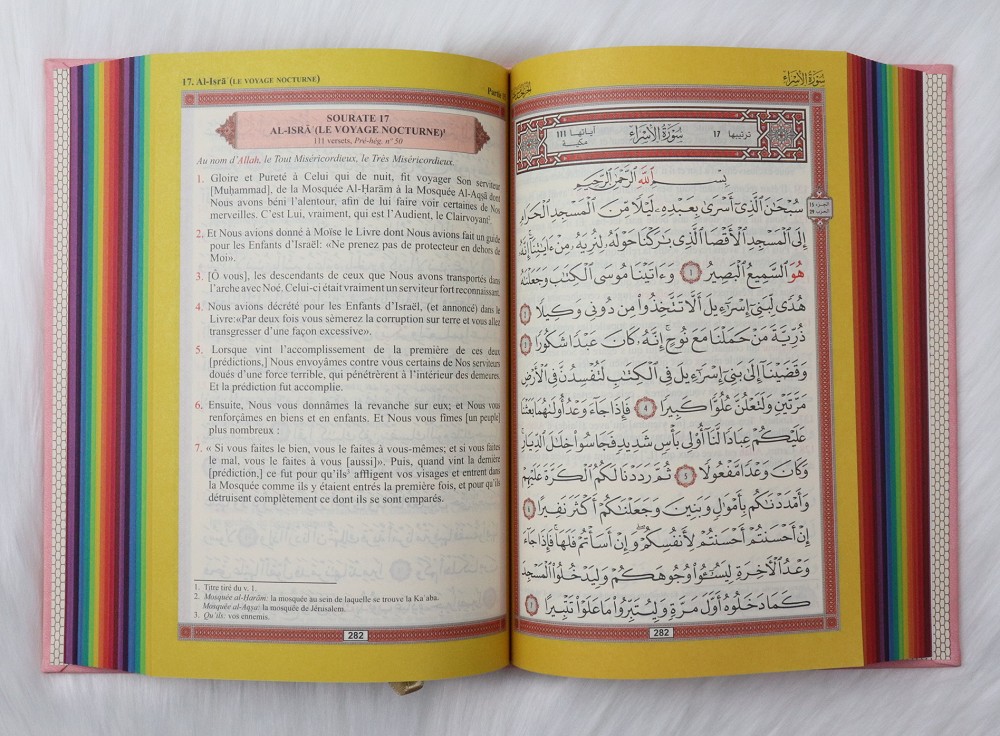 17. Al-Isrâ (LE VOYAGE NOCTURNE)
Partie
SOURATE 17
AL-ISRÂ (LE VOYAGE NOCTURNE)¹
111 versets, Pré-hég. n° 50
Au nom d'Allah, le Tout Miséricordieux, le Très Miséricordieux.
1. Gloire et Pureté à Celui qui de nuit, fit voyager Son serviteur
[Muḥammad], de la Mosquée Al-Ḥarâm à la Mosquée Al-Aqṣâ dont
Nous avons béni l'alentour, afin de lui faire voir certaines de Nos
merveilles. C'est Lui, vraiment, qui est l'Audient, le Clairvoyant².
2. Et Nous avions donné à Moïse le Livre dont Nous avions fait un guide
pour les Enfants d'Israël: «Ne prenez pas de protecteur en dehors de
Moi».
3. [Ô vous], les descendants de ceux que Nous avons transportés dans
l'arche avec Noé. Celui-ci était vraiment un serviteur fort reconnaissant.
4. Nous avions décrété pour les Enfants d'Israël, (et annoncé) dans le
Livre:«Par deux fois vous sèmerez la corruption sur terre et vous allez
transgresser d'une façon excessive».
5. Lorsque vint l'accomplissement de la première de ces deux
[prédictions,] Nous envoyâmes contre vous certains de Nos serviteurs
doués d'une force terrible, qui pénétrèrent à l'intérieur des demeures.
Et la prédiction fut accomplie.
6. Ensuite, Nous vous donnâmes la revanche sur eux; et Nous vous
renforcâmes en biens et en enfants. Et Nous vous fîmes [un peuple]
plus nombreux :
7. « Si vous faites le bien, vous le faites à vous-mêmes; et si vous faites
le mal, vous le faites à vous [aussi]». Puis, quand vint la dernière
[prédiction,] ce fut pour qu'ils³ affligent vos visages et entrent dans
la Mosquée comme ils y étaient entrés la première fois, et pour qu'ils
détruisent complètement ce dont ils se sont emparés.
1. Titre tiré du v. 1.
2. Mosquée al-Ḥarâm: la mosquée au sein de laquelle se trouve la Ka'aba.
Mosquée al-Aqṣa: la mosquée de Jérusalem.
3. Qu'ils: vos ennemis.
282
سُورَةُ الإِسْرَاءِ
ترتيبها 17 سُورَةُ الإِسْرَاءِ آياتها 111 مكية
بِسْمِ اللَّهِ الرَّحْمَٰنِ الرَّحِيمِ
سُبْحَٰنَ ٱلَّذِىٓ أَسْرَىٰ بِعَبْدِهِۦ لَيْلًا مِّنَ ٱلْمَسْجِدِ ٱلْحَرَامِ
إِلَى ٱلْمَسْجِدِ ٱلْأَقْصَا ٱلَّذِى بَٰرَكْنَا حَوْلَهُۥ لِنُرِيَهُۥ مِنْ ءَايَٰتِنَآ إِنَّهُۥ
هُوَ ٱلسَّمِيعُ ٱلْبَصِيرُ ١ وَءَاتَيْنَا مُوسَى ٱلْكِتَٰبَ وَجَعَلْنَٰهُ
هُدًى لِّبَنِىٓ إِسْرَٰٓءِيلَ أَلَّا تَتَّخِذُوا۟ مِن دُونِى وَكِيلًا ٢
ذُرِّيَّةَ مَنْ حَمَلْنَا مَعَ نُوحٍ إِنَّهُۥ كَانَ عَبْدًا شَكُورًا ٣
وَقَضَيْنَآ إِلَىٰ بَنِىٓ إِسْرَٰٓءِيلَ فِى ٱلْكِتَٰبِ لَتُفْسِدُنَّ فِى ٱلْأَرْضِ
مَرَّتَيْنِ وَلَتَعْلُنَّ عُلُوًّا كَبِيرًا ٤ فَإِذَا جَآءَ وَعْدُ أُولَىٰهُمَا بَعَثْنَا
عَلَيْكُمْ عِبَادًا لَّنَآ أُو۟لِى بَأْسٍ شَدِيدٍ فَجَاسُوا۟ خِلَٰلَ ٱلدِّيَارِ
وَكَانَ وَعْدًا مَّفْعُولًا ٥ ثُمَّ رَدَدْنَا لَكُمُ ٱلْكَرَّةَ عَلَيْهِمْ
وَأَمْدَدْنَٰكُم بِأَمْوَٰلٍ وَبَنِينَ وَجَعَلْنَٰكُمْ أَكْثَرَ نَفِيرًا ٦
إِنْ أَحْسَنتُمْ أَحْسَنتُمْ لِأَنفُسِكُمْ وَإِنْ أَسَأْتُمْ فَلَهَا فَإِذَا جَآءَ
وَعْدُ ٱلْءَاخِرَةِ لِيَسُۥٓـُٔوا۟ وُجُوهَكُمْ وَلِيَدْخُلُوا۟ ٱلْمَسْجِدَ
كَمَا دَخَلُوهُ أَوَّلَ مَرَّةٍ وَلِيُتَبِّرُوا۟ مَا عَلَوْا۟ تَتْبِيرًا ٧
الجزء 15
الحزب 29
282